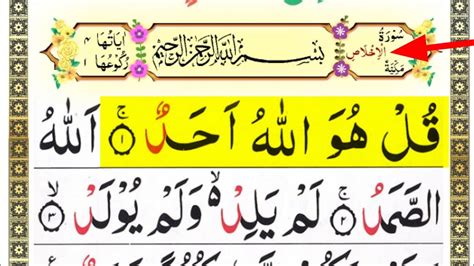 سُوْرَةُ الْاِخْلَاصِ مَكِّيَّةٌ
بِسْمِ اللهِ الرَّحْمٰنِ الرَّحِيْمِ
اٰيَاتُهَا ٤ رُكُوْعُهَا ١
قُلْ هُوَ اللهُ اَحَدٌ ۚ ١ اَللهُ
الصَّمَدُ ۚ ٢ لَمْ يَلِدْ ۙ وَلَمْ يُوْلَدْ ۙ ٣